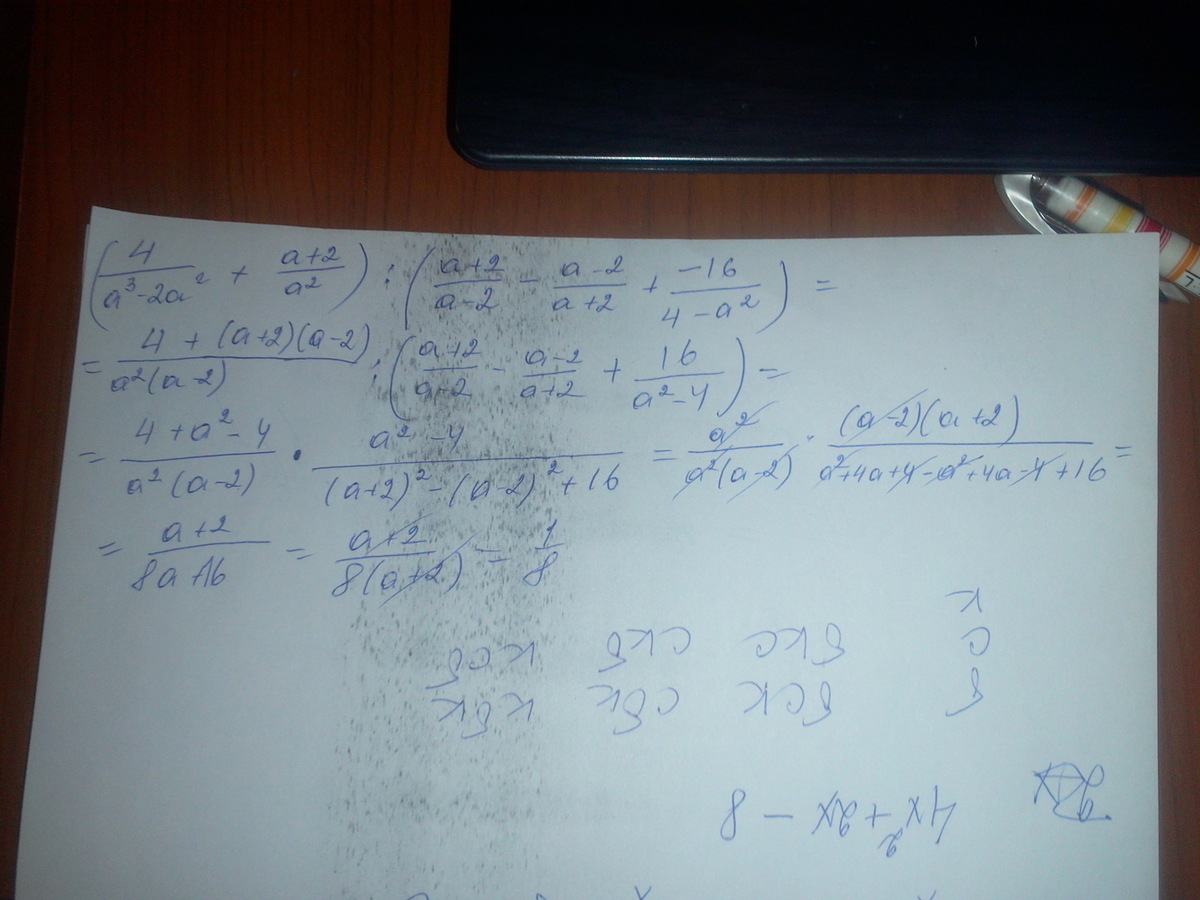 (4/(a³-2a²) + (a+2)/a²) : ((a+2)/(a-2) - (a-2)/(a+2) + (-16)/(4-a²)) =
= (4+(a+2)(a-2))/(a²(a-2)) : ((a+2)/(a-2) - (a-2)/(a+2) + 16/(a²-4)) =
= (4+a²-4)/(a²(a-2)) · (a²-4)/((a+2)²-(a-2)²+16) = a²/(a²(a-2)) · ((a-2)(a+2))/(a²+4a+4-a²+4a-4+16) =
= (a+2)/(8a+16) = (a+2)/(8(a+2)) = 1/8
4x²+2x - 8
б бск сбк кбк
с бкс скб ксб
к